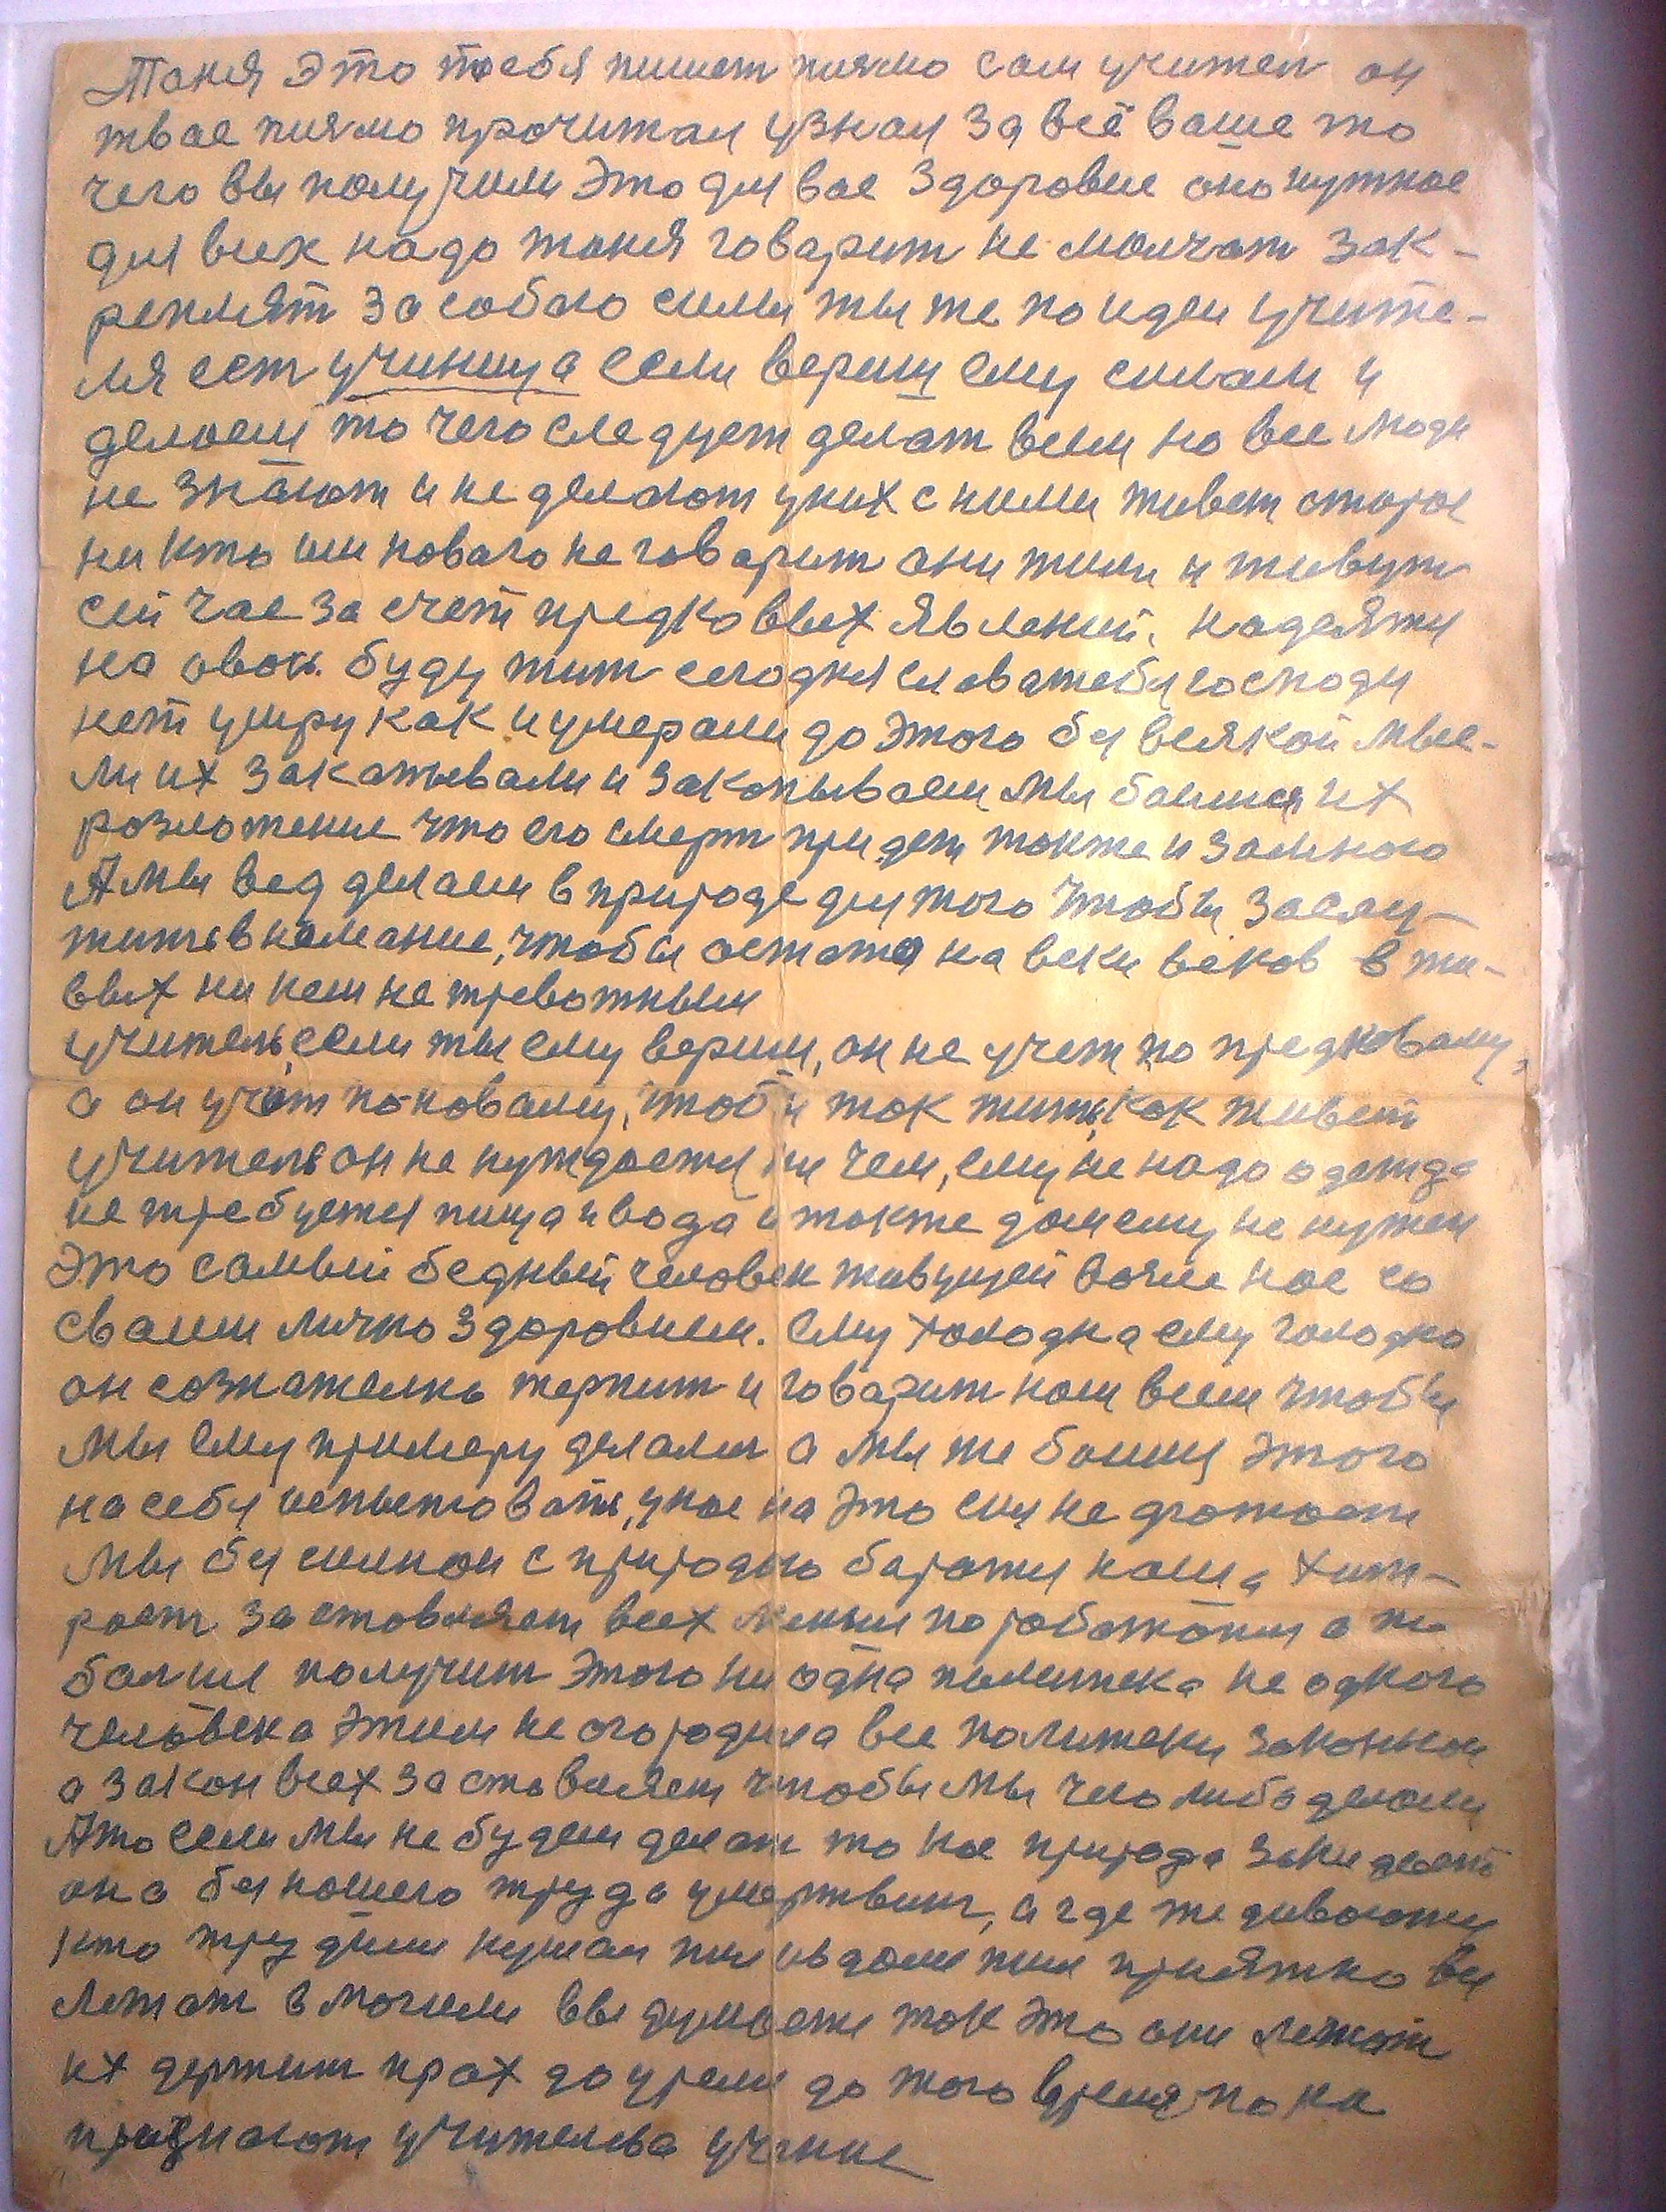 Таня это тебя пишет пиямо сам учител он
твае пиямо прочитал узнал за всё ваше то
чего вы получили это для вас здоровие оно нужное
для всех надо таня говарит не молчат зак-
реплят за собаю силы ты же по идеи учите-
ля ест учиница если вериш ему силам и
делаеш то чего следует делат всем но все люди
не знают и не делают у них с ними живет старое
ни кто им новаго не говарит они жили и живут
сей час за счет предковвых явлений. надеяжи
на авось. буду жит сегодня слава тебя господи
нет умру как и умерали до этого бы всякой мыс-
ли их закапывали и закопываем мы баимся их
розложение что его смерт придет также и за мною
А мы вед делаем в природе для того чтобы заслу-
жить внемание, чтобы остатся на веки веков в жи-
вых ни кем не тревожными
учитель если ты ему вериш, он не учет по предковаму,
а он учёт по новаму, чтобы так жить, как живет
учитель он не нуждается ни чем, ему не надо одежда
не требуется пища и вода и также дом ему не нужен
Это самый бедный человек живущей возле нас со
сваим лично здоровием. Ему холодна ему голодно
он сознателнь терпит и говарит нам всем чтобы
мы ему примеру делали а мы же баимся этого
на себя испытовать, у нас на это сил не хватает
мы бы силнои с природаю баратся наша хит-
рост заставляет всех меньше поработать а по
болше получит этого ни одна политека не одного
человека этим не огородила все политеки законные
а закон всех заставляет чтобы мы чего либо делали
А то если мы не будем делат то нас природа
она без нашего труда умертвит, а где же деваютця
кто трудился кушал пил из дома жил приятно все
лежат в могиле вы думаете так это они лежат
их держит прах до время до того время, пока
признают учителева учение